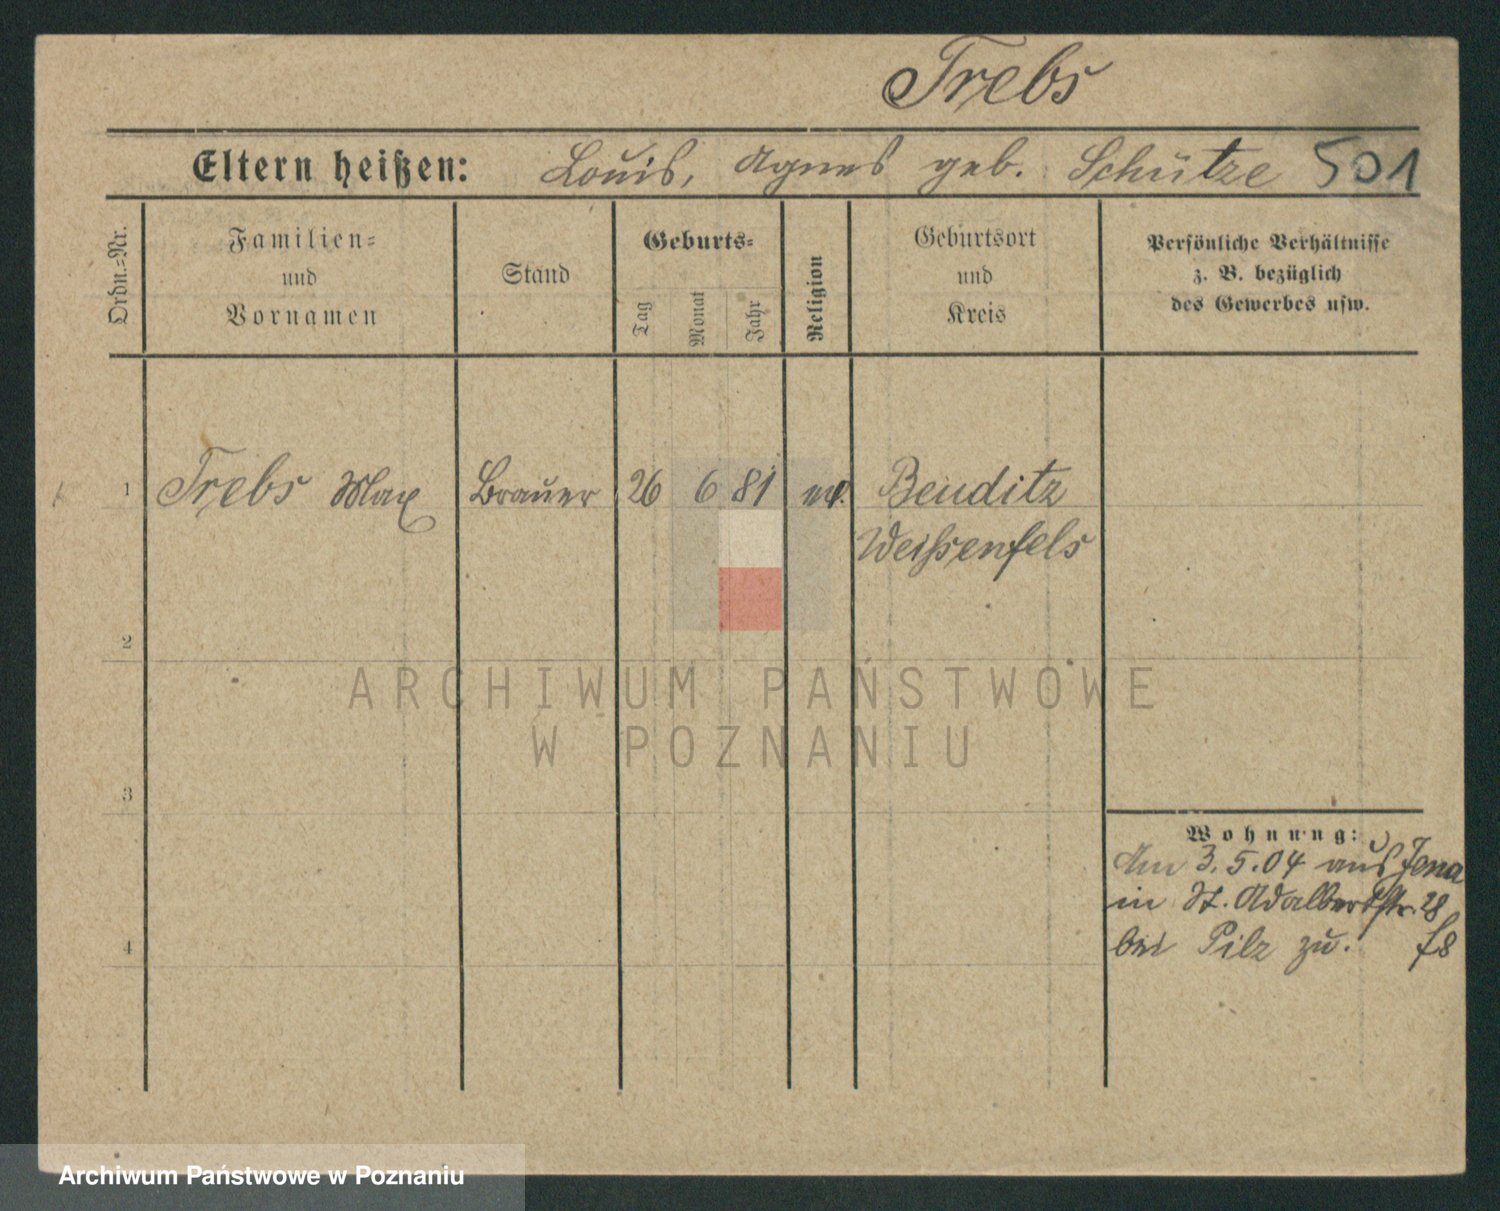 Trebs
Eltern heißen: Louis, Agnes geb. Schütze 501
Ordn.=Nr.
Familien=
und
Vornamen
Stand
Geburts=
Tag
Monat
Jahr
Religion
Geburtsort
und
Kreis
Persönliche Verhältnisse
z. B. bezüglich
des Gewerbes usw.
1 Trebs Max Brauer 26 6 81 Beuditz
Weißenfels
2
ARCHIWUM PAŃSTWOWE
W POZNANIU
3
Wohnung:
Am 3.5.04 aus Jena
in St. Adalbertstr. 28
4
bei Pilz zu.
Archiwum Państwowe w Poznaniu